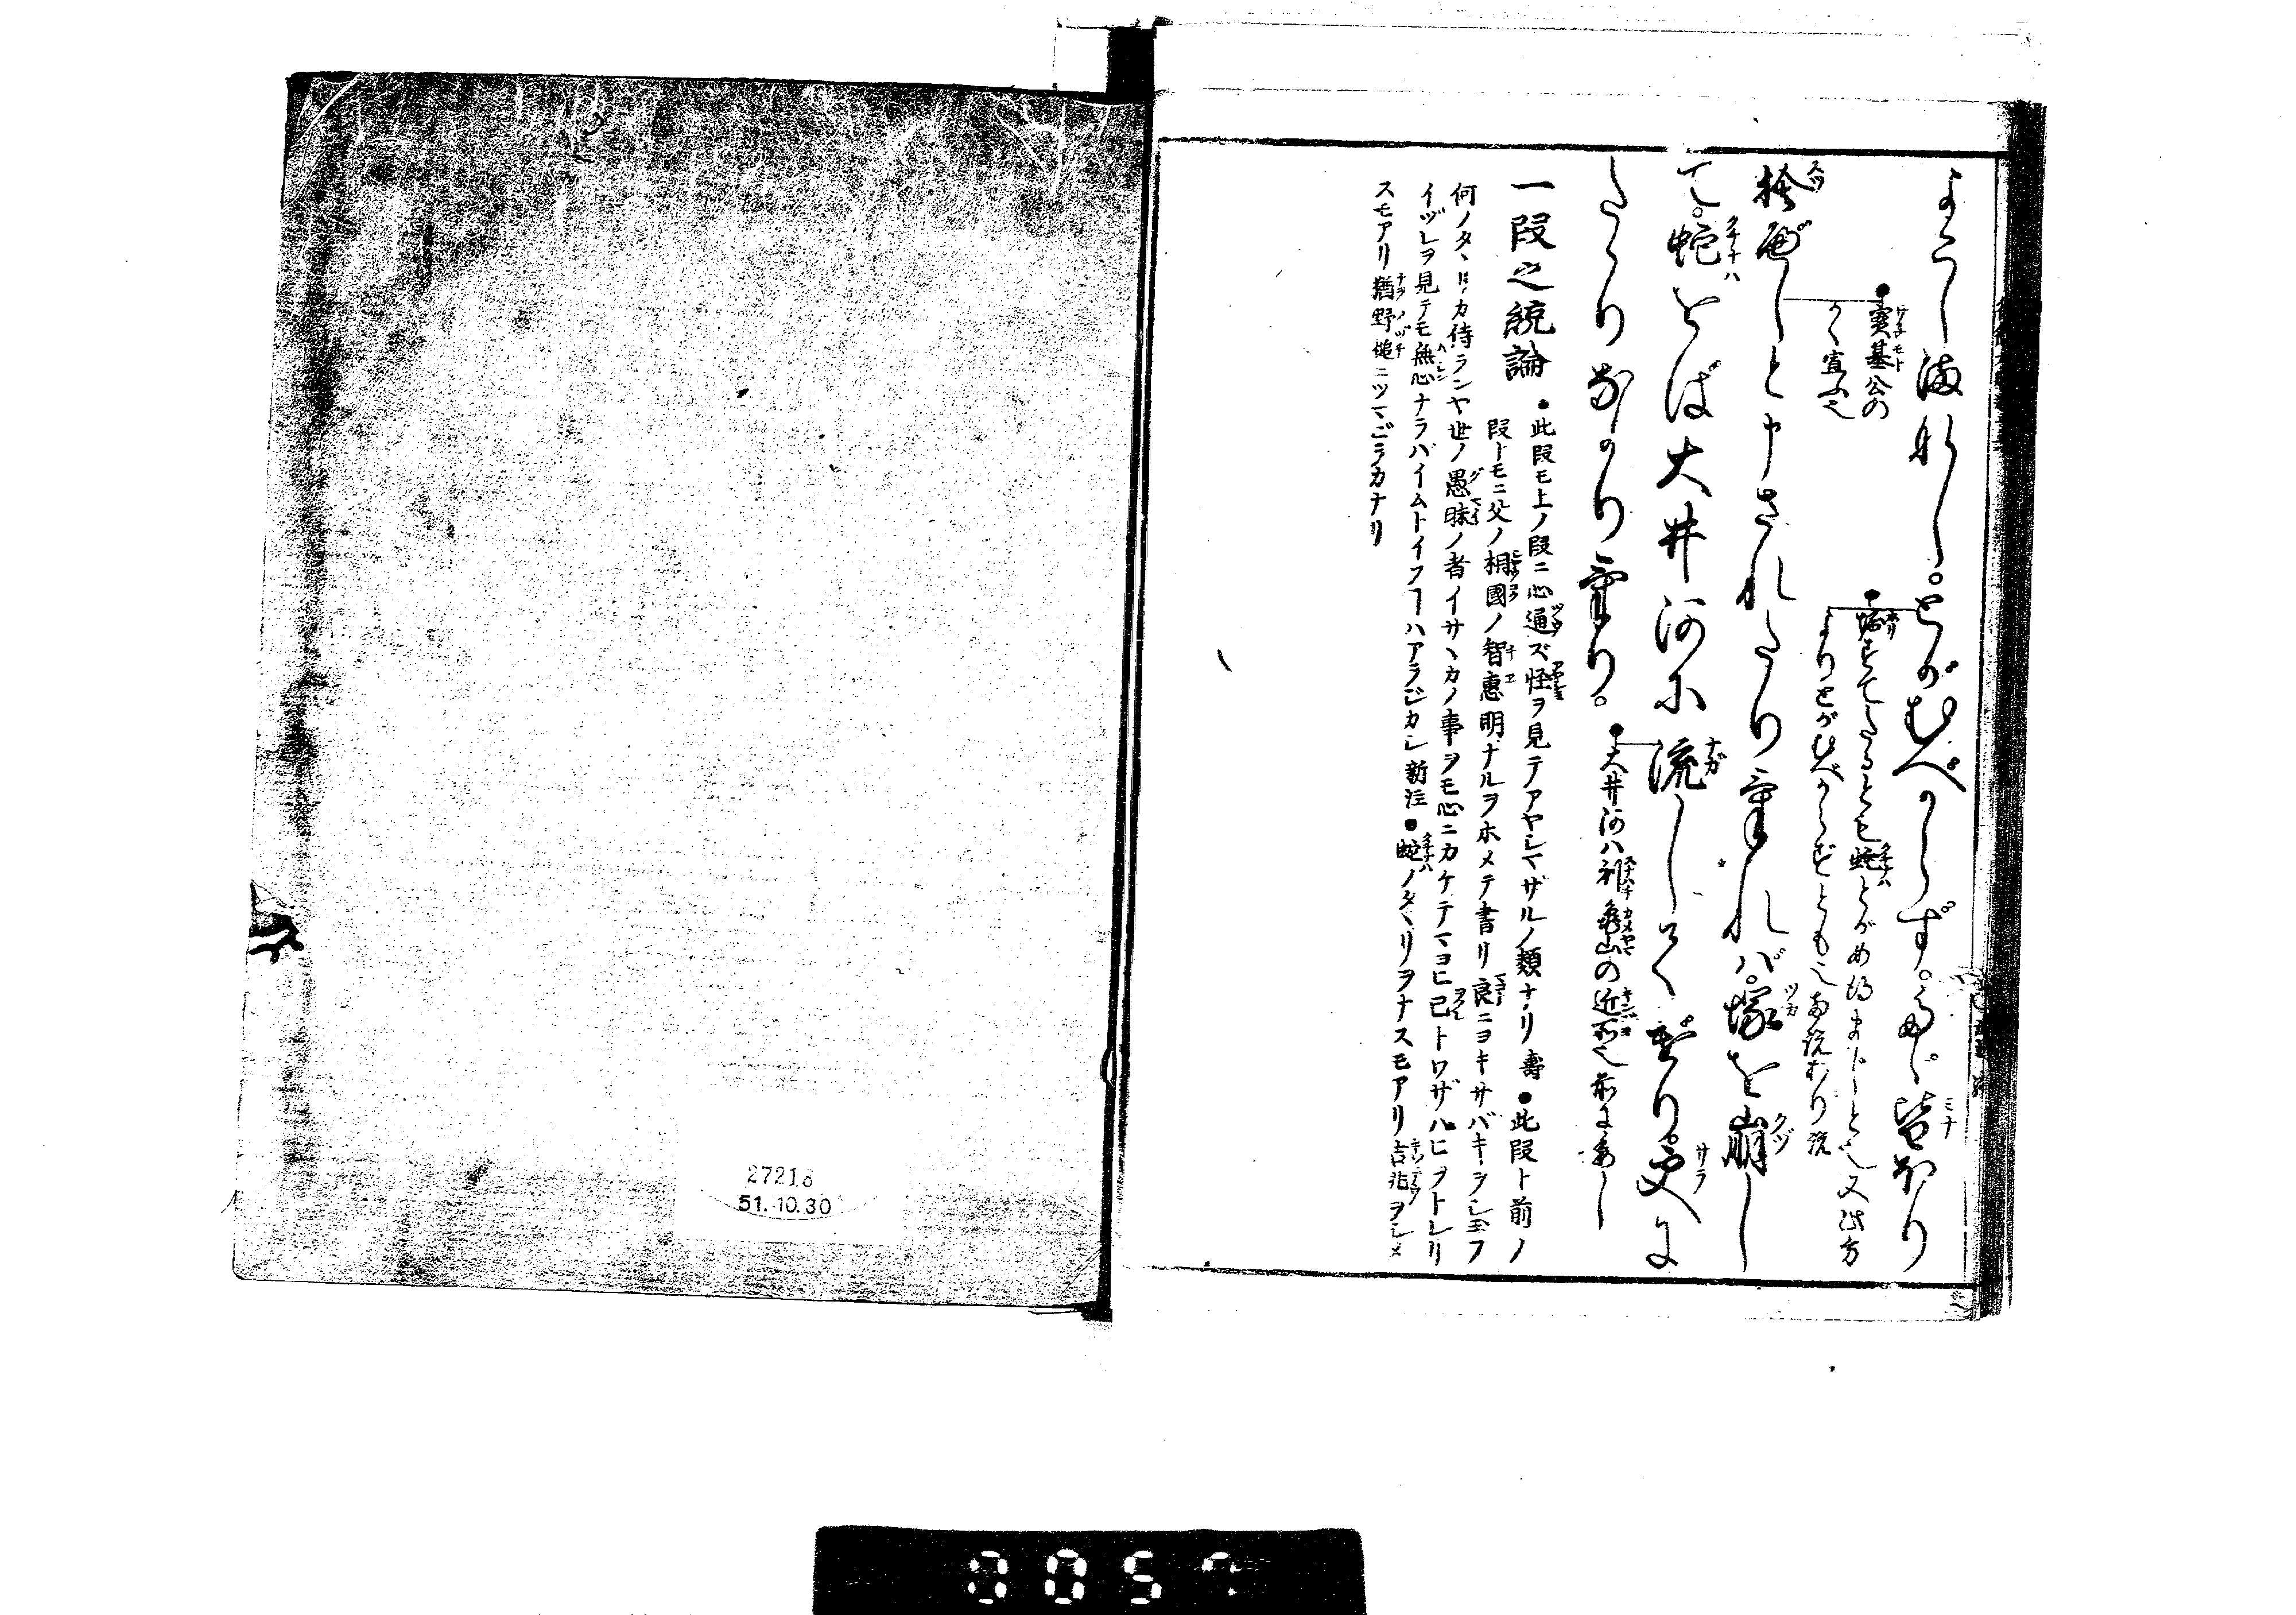 よこしまなし。とがむべからず。たゞ皆ほり
捨べしと申されたりければ。塚を崩し
て。蛇をば大井河に流してけり。更に
たゝりなかりけり。
実基公の
かく宣ふ也
堀すてたるとも蛇とがめ得まじと也又此方
よりとがむべからずとも也両説有り
大井河ハ
亀山の近所也前に委し
一段之統論
●此段モ上ノ段ニ心通ズ怪ヲ見テアヤシマザルノ類ナリ壽●此段ト前ノ
段トモニ父ノ相國ノ智惠明ナルヲホメテ書リ良ニヨキサバキ
何ノタヽリカ侍ランヤ世ノ愚昧ノ者イサヽカノ事ヲモ心ニカケテマヨヒ已トワザハヒヲトレリ
イヅレヲ見テモ無心ナラバイムトイフ
ハアラジカシ新注●蛇ノタヽリヲナスモアリ吉兆ヲシメ
スモアリ猶野槌ニツマビラカナリ
27218
51.10.30
0057